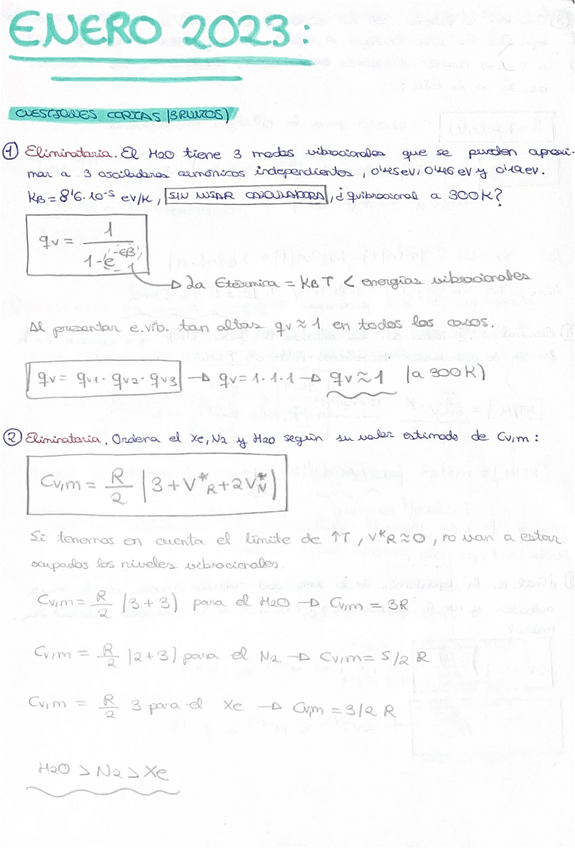 ENERO 2023:
CUESTIONES CORTAS (BRUNTOS)
① Eliminatoria. El H2O tiene 3 modos vibracionales que se pueden aproxi-
mar a 3 osciladores armónicos independientes, 0'45eV, 0'46 eV y 0'49 eV.
KB = 8'6·10⁻⁵ eV/K, SIN USAR CALCULADORA, ¿qvibracional a 300K?
qv = 1 / 1-e^(-εβ)
→ La Etérmica = KBT < energías vibracionales
Al presentar e.vib. tan altas qv ≈ 1 en todos los casos.
qv = qv1 · qv2 · qv3 → qv = 1·1·1 → qv ≈ 1 (a 300K)
② Eliminatoria. Ordena el Xe, N2 y H2O según su valor estimado de Cv,m:
Cv,m = R/2 (3 + V*R + 2V*V)
Si tenemos en cuenta el límite de ↑T, V*R ≈ 0, no van a estar
ocupados los niveles vibracionales.
Cv,m = R/2 (3+3) para el H2O → Cv,m = 3R
Cv,m = R/2 (2+3) para el N2 → Cv,m = 5/2 R
Cv,m = R/2 3 para el Xe → Cv,m = 3/2 R
H2O > N2 > Xe